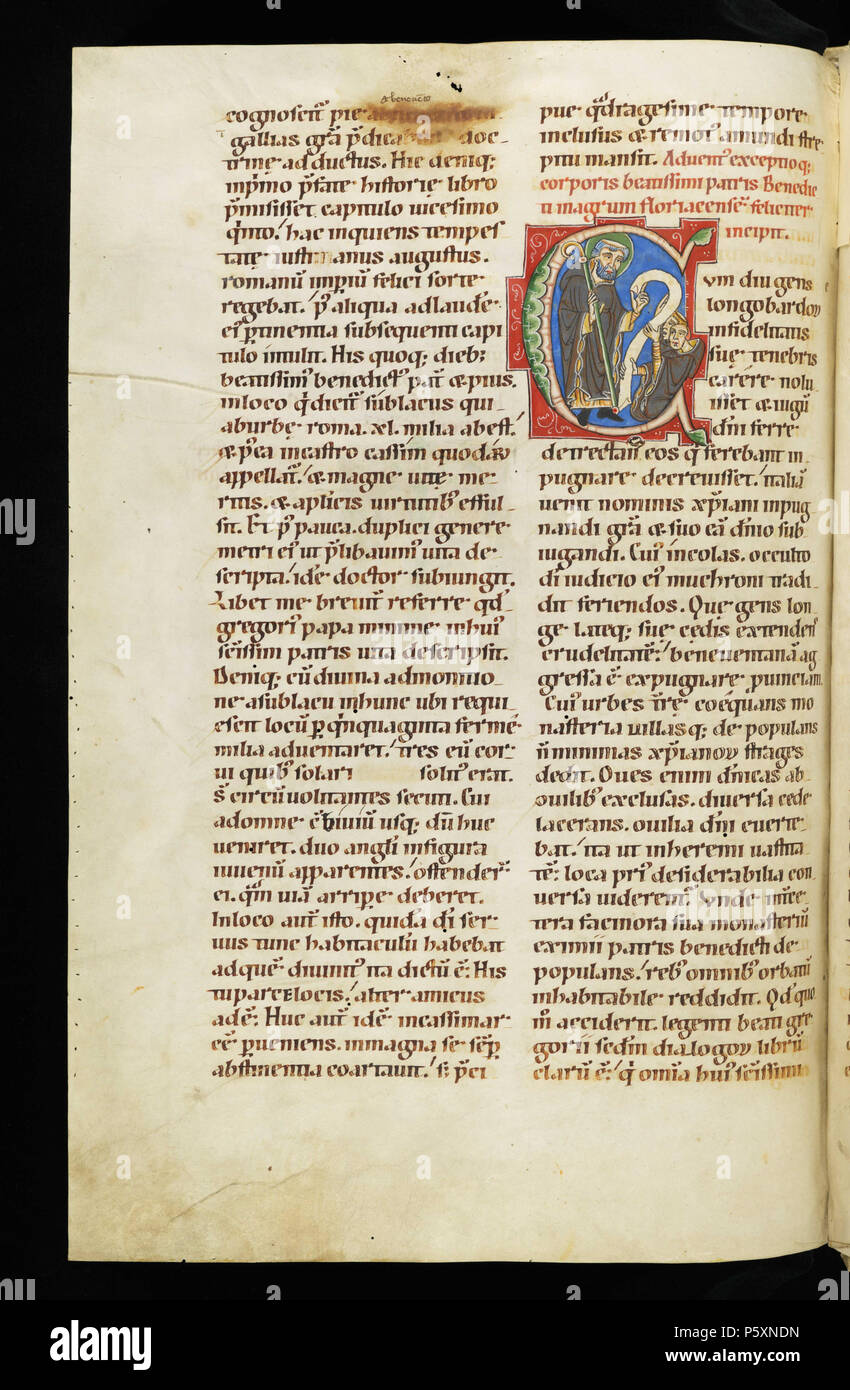 & beneuẽto
cognoscit' pie
gallias grã p̃dica doc-
trine adductus. Hic deniq;
inprimo p̃fate historie libro
p̃misisset capitulo uicesimo
q̃nto. hac inquiens tempes
tate iusti anus augustus.
romanũ imp̃iũ felici sorte
regebat. p' aliqua adlaude
ei' ꝑtinentia subsequenti capi
tulo intulit. His quoq; dieb;
beatissim' benedict' pat̃ & pius.
inloco q̃ dicit' sublacus qui
aburbe roma. xl. milia abest.
& p'ea incastro cassini quod
appellat'. & magne uite me-
ritis. & ap̃licis uirtutib' efful-
sit. Et p' pauca. duplici genere
metri ei' ut p̃libauim' uita de-
scripta. idẽ doctor subiungit.
Libet me breuit̃ referre qd̃
gregori' papa minime inhui'
sc̃issimi patris uita descripsit.
Deniq; cũ diuina admonitio
ne asublacu inhunc ubi requi
escit locũ ꝑ q̃nquaginta fermẽ
milia aduentaret. tres eũ cor-
ui quib' solari solit' erat.
s; circũuolitantes secuti. Cui
adomne usq; dũ huc
ueniret. duo angli infigura
iuuenũ apparentes. ostender̃
ei. q̃m uiã arripe deberet.
Inloco aut̃ isto. quidã di ser
uus tunc habitaculũ habebat
adquẽ diuinit' ita dictũ ẽ. His
tu parce locis. alter amicus
adẽ. Huc aut̃ idẽ incassinar
cẽ ꝑueniens. inmagna se sẽp
abstinentia coartauit. s; p̃ci
pue q̃dragesime tempore
inclusus & remot' amundi stre
pitu mansit. Aduent' exceptioq;
corporis beatissimi patris Benedic
ti inagrum floriacensẽ feliciter
incipit.
Cum diu gens
longobardoꝝ
infidelitatis
suę tenebris
carere nolu
isset & iugũ
dñi ferre
detrectan eos q̃ ferebant in
pugnare decreuisset. italiã
uenit nominis xp̃iani inpug
nandi grã & suo eã dñio sub
iugandi. Cui' incolas. occulto
di iudicio ei' muchroni tradi
dit feriendos. Que gens lon
ge lateq; sue cedis extendens
crudelitatẽ. beneuentanã ag
gressa ẽ expugnare puinciam.
Cui' urbes t̃re coẽquans mo
nasteria uillasq; de populans
ñ minimas xp̃ianoꝝ strages
dedit. Oues enim dñicas ab
ouilib' exclusas. diuersa cede
lacerans. ouilia dñi euerte
bat. ita ut inheremi uastita
tẽ. loca pri' desiderabilia con
uersa uiderent'. Unde int̃ ce
tera facinora sua monasteriũ
eximii patris benedicti de
populans. reb' omnib' orbatũ
inhabitabile reddidit. Qd̃ quo
m̃ acciderit. legenti beati gre
gorii sedm dialogoꝝ librũ
clarũ ẽ. q̃ omia hui' sc̃issimi
alamy
Image ID: P5XNDN
www.alamy.com